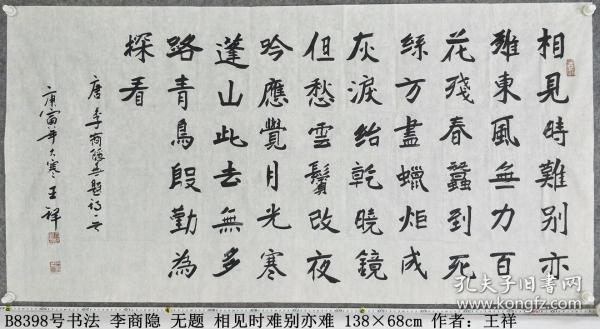 相見時難別亦
難東風無力百
花殘春蠶到死
絲方盡蠟炬成
灰淚始乾曉鏡
但愁雲鬢改夜
吟應覺月光寒
蓬山此去無多
路青鳥殷勤為
探看
唐李商隱無題詩一首
庚寅年大寒王祥
孔夫子旧书网
B8398号书法 李商隐 无题 相见时难别亦难 138×68cm 作者：王祥